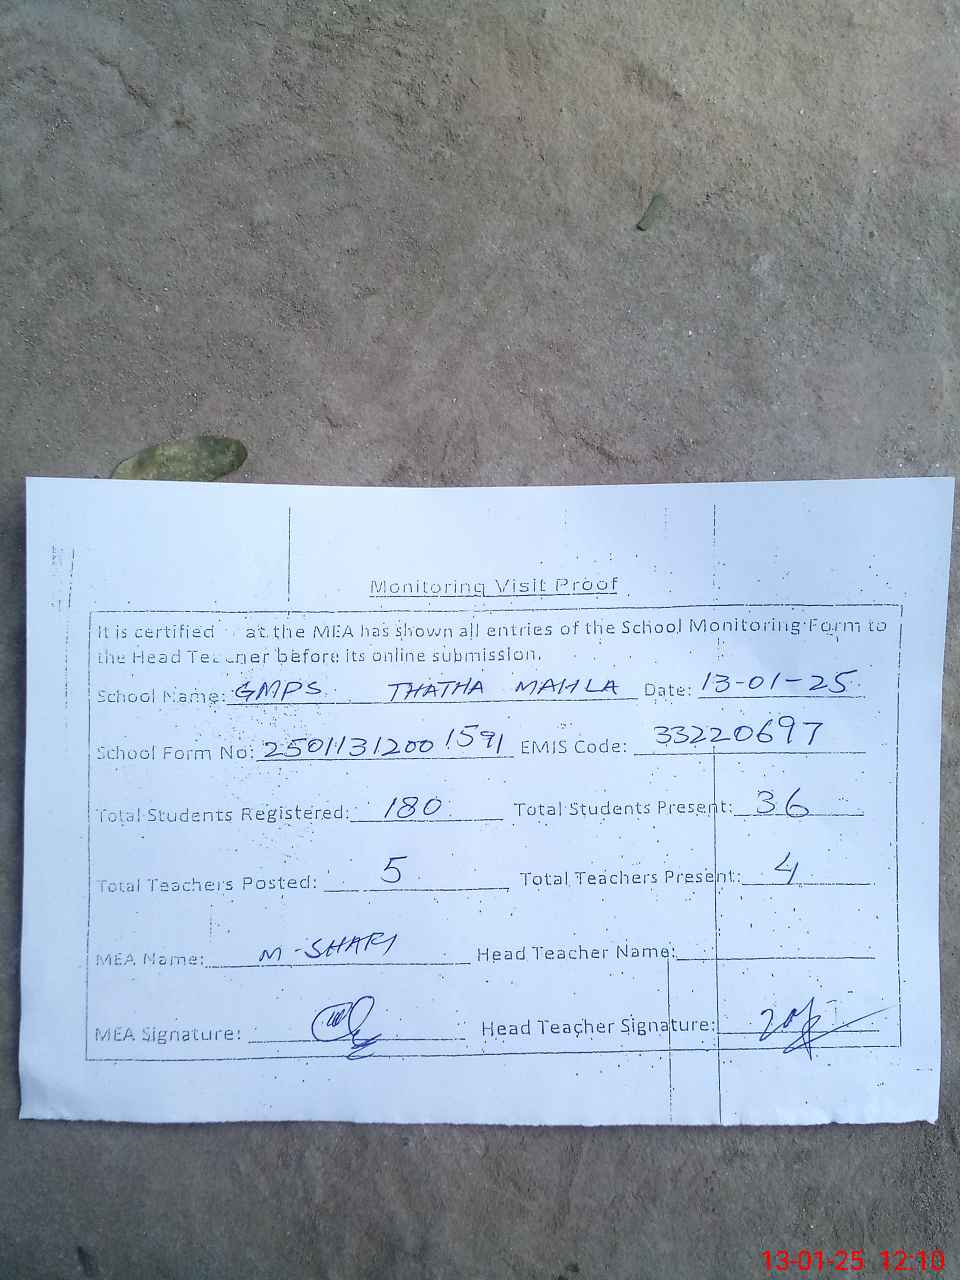 Monitoring Visit Proof
It is certified at the MEA has shown all entries of the School Monitoring Form to
the Head Teacher before its online submission.
School Name: GMPS THATHA MAHLA Date: 13-01-25
School Form No: 25011312001591 EMIS Code: 33220697
Total Students Registered: 180 Total Students Present: 36
Total Teachers Posted: 5 Total Teachers Present: 4
MEA Name: M-SHAFI Head Teacher Name:
MEA Signature: Head Teacher Signature:
13-01-25 12:10